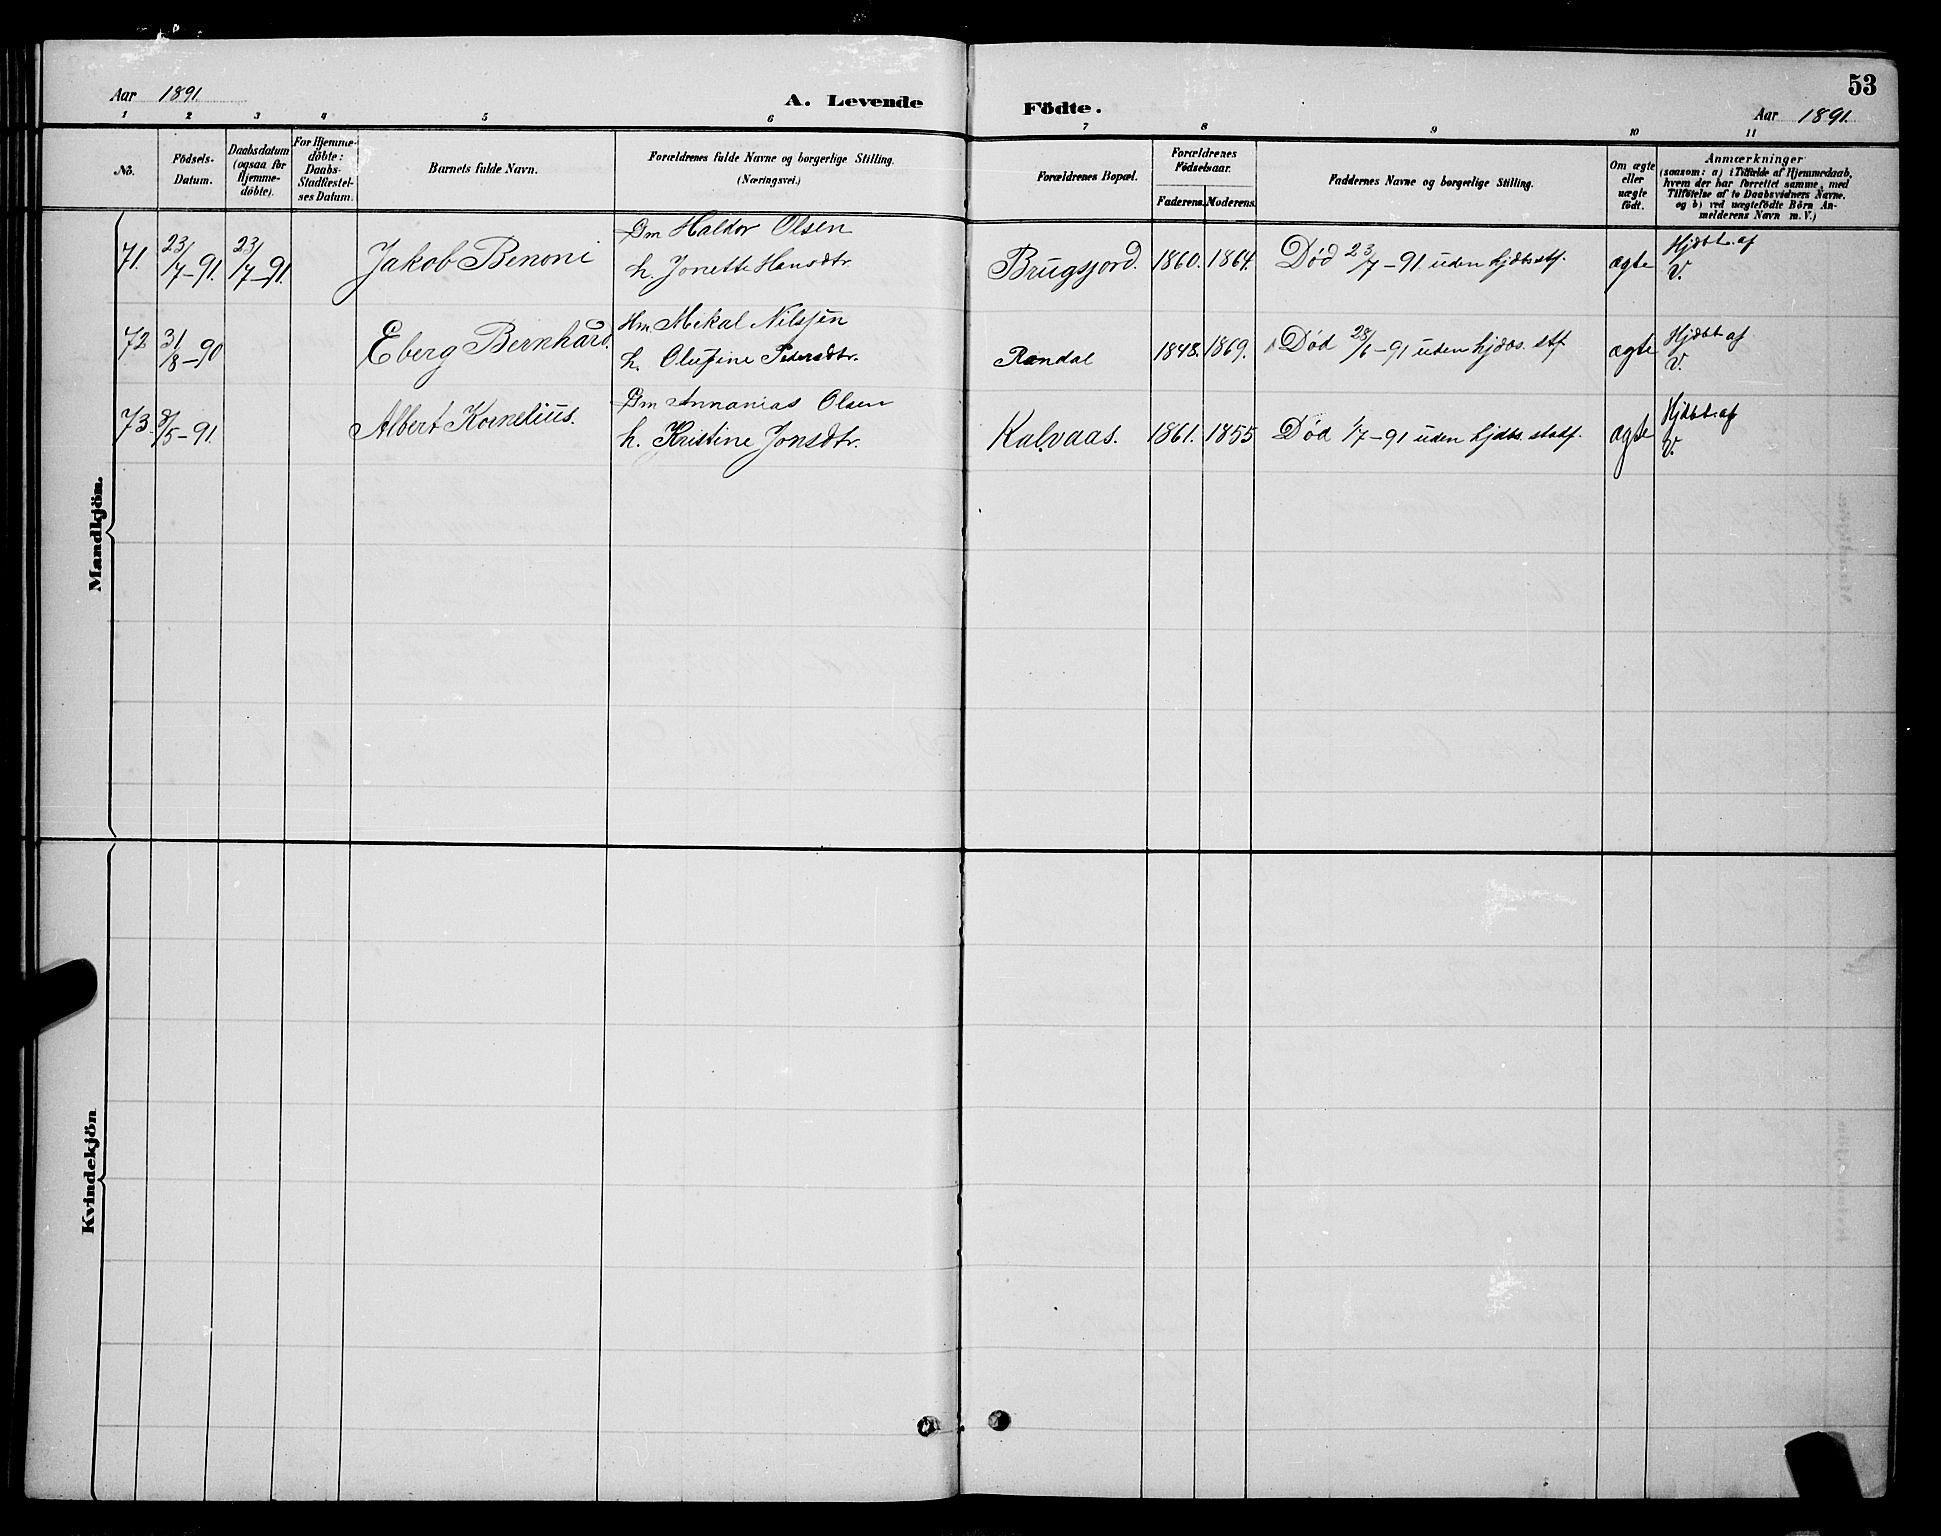 53
Aar 1891.
A. Levende Födte.
Aar 1891.
1 2 3 4 5 6 7 8 9 10 11
No.
Födsels-Datum.
Daabsdatum (ogsaa for Hjemme-döbte).
For Hjemme-döbte: Daabs-Stadfæstel-ses Datum.
Barnets fulde Navn.
Forældrenes fulde Navne og borgerlige Stilling.
(Næringsvei.)
Forældrenes Bopæl.
Forældrenes Födselsaar.
Faderens. Moderens.
Faddernes Navne og borgerlige Stilling.
Om ægte eller uægte födt.
Anmærkninger
(saasom: a) i Tilfælde af Hjemmedaab,
hvem der har forrettet samme, med
Tilföielse af to Daabsvidners Navne.
og b) ved uægtefödte Börn An-
melderens Navn m. V.)
Mandkjön.
71. 23/7-91. 23/7-91. Jakob Benoni Gm Haldor Olsen
h. Jonette Hansdtr. Brugsjord. 1860. 1864. Död 23/7-91. uden hjdbs stf. ægte Hjdbt. af
V.
72 31/8-90 Eberg Bernhard. Hm Mekal Nilssen
h. Olufine Pedersdtr. Rendal 1848. 1869. Död 23/6-91 uden hjdbs. stf. ægte Hjdbt af
V.
73. 8/5-91. Albert Kornelius. Gm Annanias Olsen
h. Kristine Jonsdtr. Kalvaas. 1861. 1855 Död 1/7-91 uden hjdbs. stadf. ægte Hjdbt. af
V.
Kvindekjön